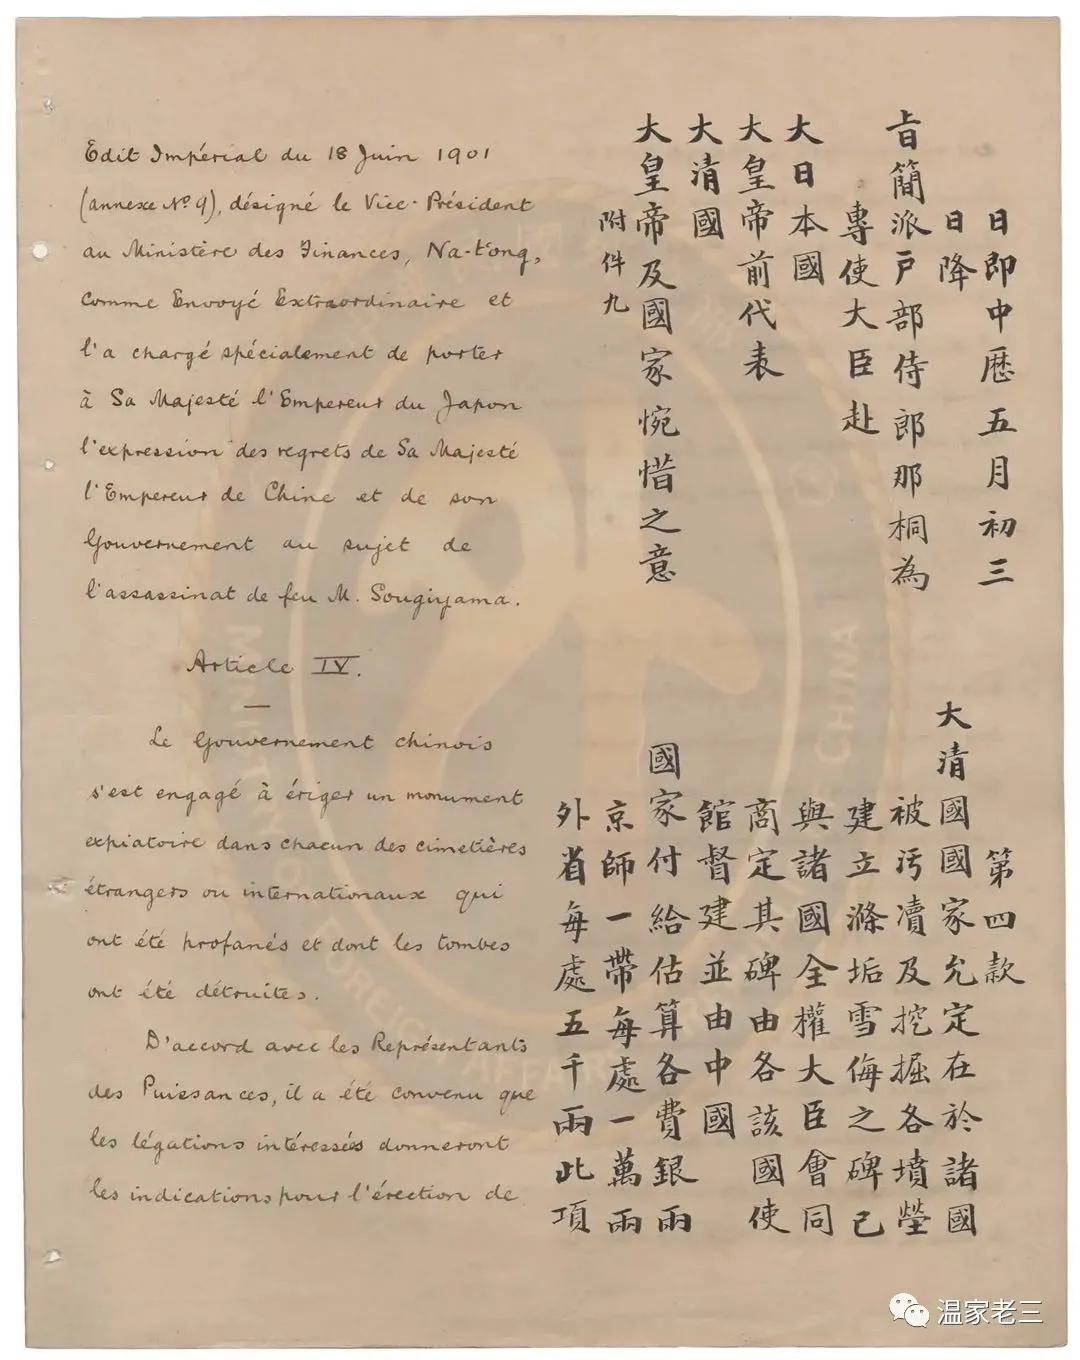 Edit Impérial du 18 Juin 1901
(annexe No. 9), désigné le Vice-Président
au Ministère des Finances, Na-t'ong,
comme Envoyé Extraordinaire et
l'a chargé spécialement de porter
à Sa Majesté l'Empereur du Japon
l'expression des regrets de Sa Majesté
l'Empereur de Chine et de son
Gouvernement au sujet de
l'assassinat de feu M. Sougiyama.
Article IV.
Le Gouvernement chinois
s'est engagé à ériger un monument
expiatoire dans chacun des cimetières
étrangers ou internationaux qui
ont été profanés et dont les tombes
ont été détruites.
D'accord avec les Représentants
des Puissances, il a été convenu que
les légations intéressées donneront
les indications pour l'érection de
日即中歷五月初三
日降
旨簡派戶部侍郎那桐為
專使大臣赴
大日本國
大皇帝前代表
大清國
大皇帝及國家惋惜之意
附件九
第四款
大清國國家允定在於諸國
被污瀆及挖掘各墳塋
建立滌垢雪侮之碑已
與諸國全權大臣會同
商定其碑由各該國使
館督建並由中國
國家付給估算各費銀兩
京師一帶每處一萬兩
外省每處五千兩此項
CHINA
FOREIGN
AFFAIRS
温家老三